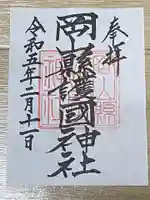 奉拝
岡山縣護國神社
令和五年二月十一日